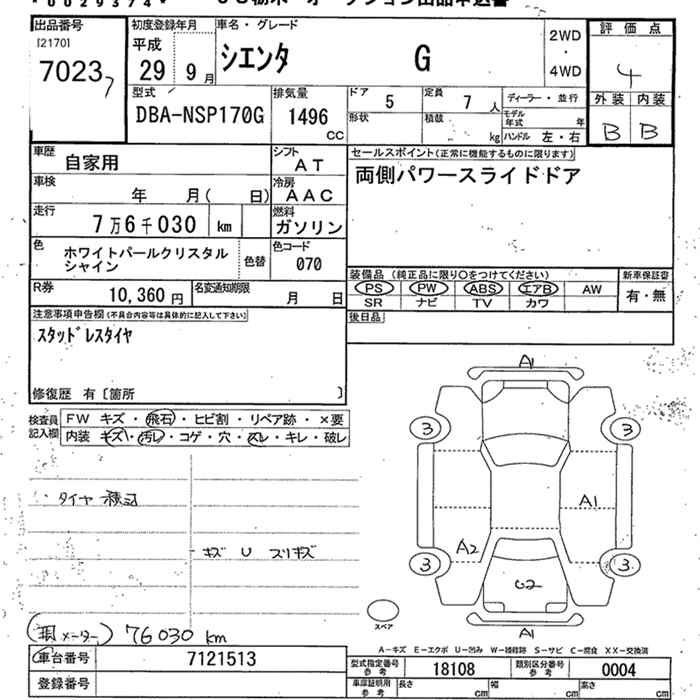 出品番号
[2170]
7023
7
初度登録年月
平成
29 9月
車名・グレード
シエンタ G
2WD
・
4WD
評価点
4
外装 内装
B B
型式
DBA-NSP170G
排気量
1496
CC
ドア
5
定員
7人
形状
積載
kg
ディーラー・並行
モデル年式 年
ハンドル 左・右
車歴
自家用
シフト
AT
車検
年 月( 日)
冷房
AAC
走行
7万6千030 km
燃料
ガソリン
色
ホワイトパールクリスタル
シャイン
色替
色コード
070
R券
10,360円
名変通知期限
月 日
セールスポイント(正常に機能するものに限ります)
両側パワースライドドア
装備品(純正品に限り○をつけてください)
PS PW ABS エアB AW
SR ナビ TV カワ
新車保証書
有・無
後日品
注意事項申告欄(不具合内容等は具体的に記入して下さい)
スタッドレスタイヤ
修復歴 有〔箇所 〕
検査員
記入欄
FW キズ・飛石・ヒビ割・リペア跡・×要
内装 キズ・汚レ・コゲ・穴・スレ・キレ・破レ
タイヤ 積込
キズ U スリキズ
A1
3
3
A1
A2
3
3
U2
A1
スペア
(現メーター) 76030 km
A-キズ E-エクボ U-凹み W-補修跡 S-サビ C-腐食 XX-交換済
車台番号
7121513
登録番号
型式指定番号
参考
18108
類別区分番号
参考
0004
車庫証明用
参考
長さ cm
幅 cm
高さ cm